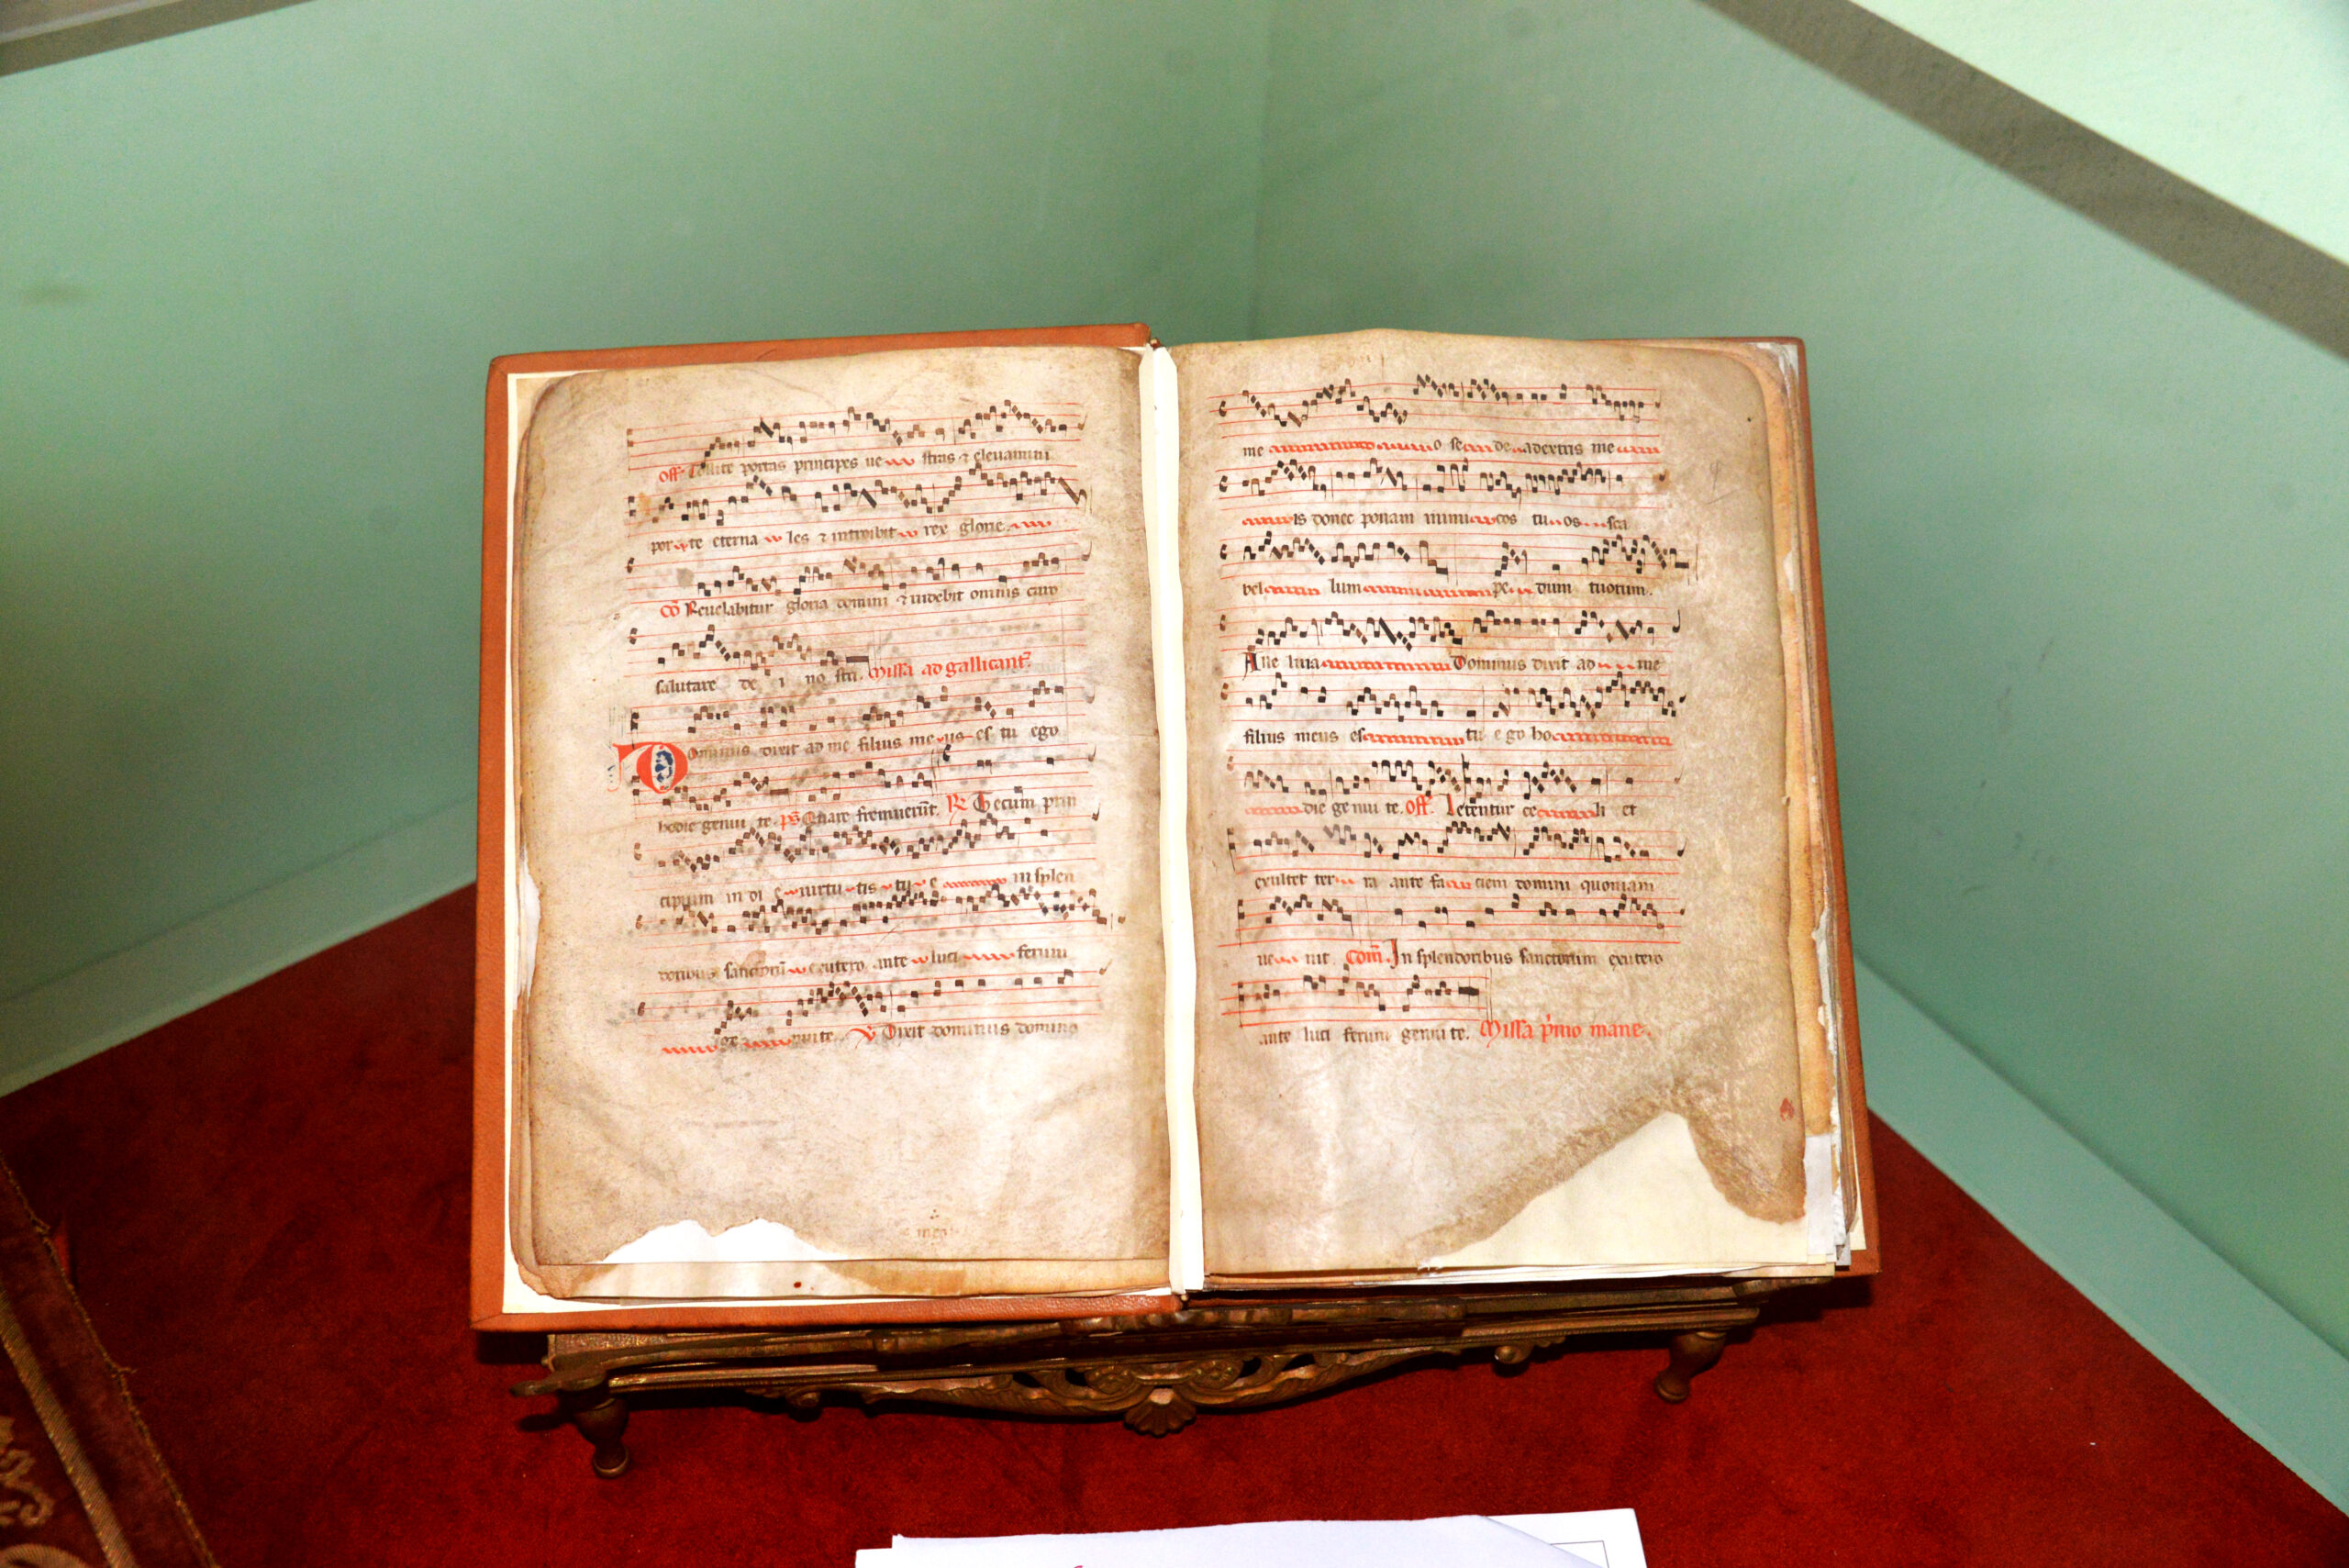 Off. Tollite portas principes ue stras ⁊ eleuamini
por te eterna les ⁊ introibit rex glorie.
Cō Reuelabitur gloria domini ⁊ uidebit omnis caro
salutare de i no stri. Missa ad gallicant.
Dominus dixit ad me filius me us es tu ego
hodie genui te. ps Quare fremuerūt. R Tecum prin
cipium in di e uirtu tis tu e in splen
doribus sanctorū ex utero ante luci ferum
ge nui te. V Dixit dominus domino
me o se de a dextris me
is donec ponam inimi cos tu os sca
bel lum pe dum tuorum.
Alle luia Dominus dixit ad me
filius meus es tu e go ho
die ge nui te. Off. Letentur ce li et
exultet ter ra ante fa ciem domini quoniam
ue nit. Com. In splendoribus sanctorum ex utero
ante luci ferum genui te. Missa p'mo mane.